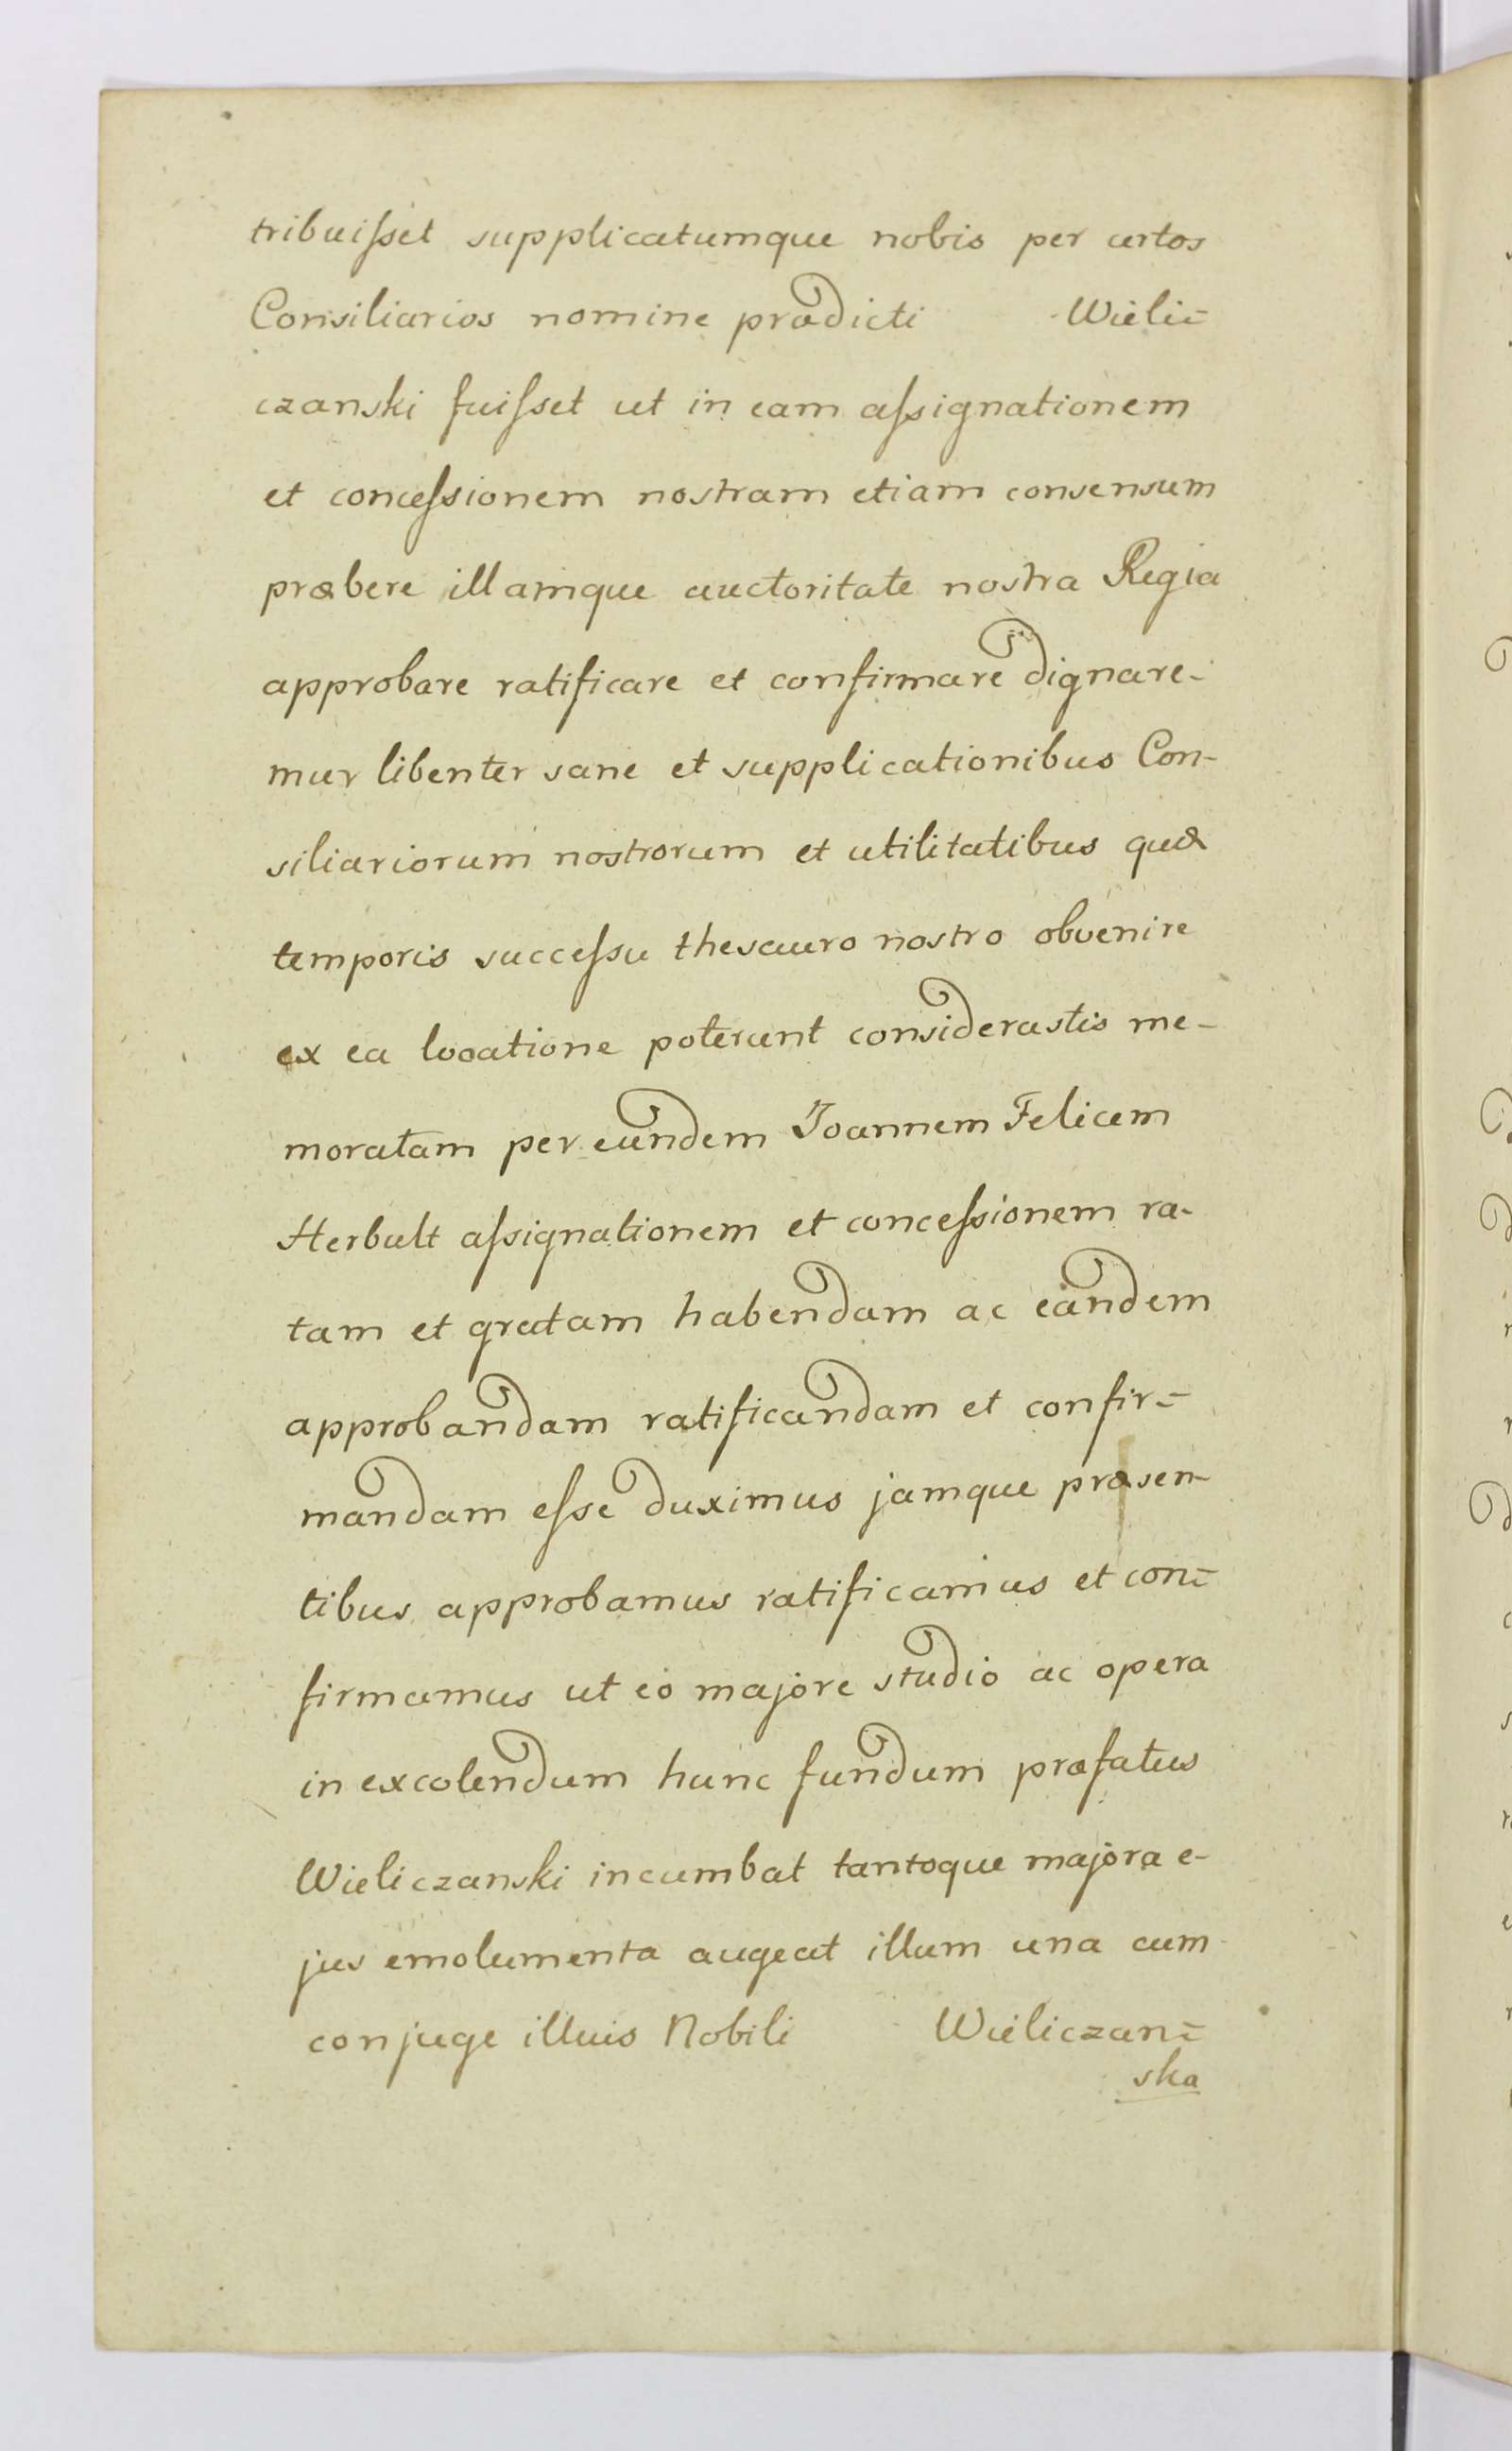 tribuiſset supplicatumque nobis per certos
Consiliarios nomine prædicti Wielic=
czanski fuiſset ut in eam aſsignationem
et conceſsionem nostram etiam consensum
præbere illamque auctoritate nostra Regia
approbare ratificare et confirmare dignare-
mur libenter sane et supplicationibus Con-
siliariorum nostrorum et utilitatibus quæ
temporis succeſsu thesauro nostro obvenire
ex ea locatione poterunt considerastis me-
moratam per eundem Joannem Felicem
Herbult aſsignationem et conceſsionem ra-
tam et gratam habendam ac eandem
approbandam ratificandam et confir=
mandam eſse duximus jamque præsen-
tibus approbamus ratificamus et con=
firmamus ut eo majore studio ac opera
in excolendum hunc fundum præfatus
Wieliczanski incumbat tantoque majora e-
jus emolumenta augeat illum una cum
conjuge illius Nobili Wieliczan=
ska